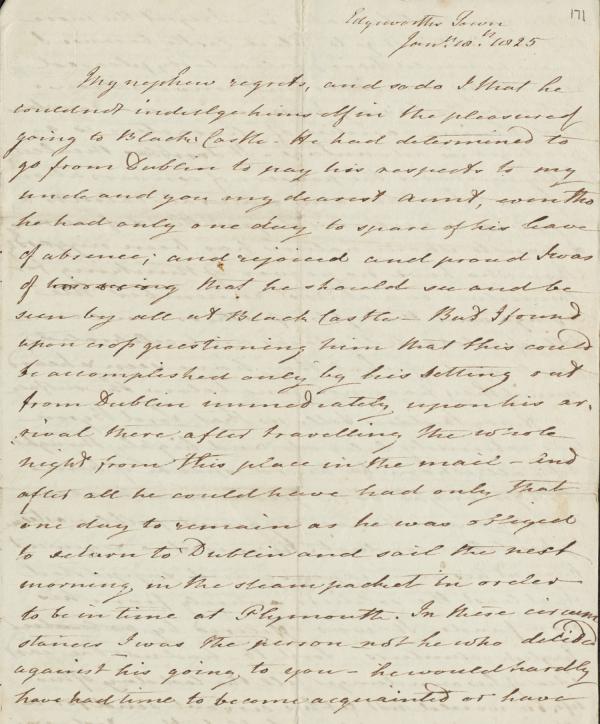 171
Edgeworths Town
Jany. 18th. 1825
My nephew regrets, and so do I that he
could not indulge himself in the pleasure of
going to Black Castle - He had determined to
go from Dublin to pay his respects to my
uncle and you my dearest aunt, even tho
he had only one day to spare of his leave
of absence; and rejoiced and proud I was
of that he should see and be
seen by all at Black Castle - But I found
upon cross questioning him that this could
be accomplished only by his setting out
from Dublin immediately upon his ar-
rival there after travelling the whole
night from this place in the mail - And
after all he could have had only that
one day to remain as he was obliged
to return to Dublin and sail the next
morning in the steam packet in order
to be in time at Plymouth. In these circum
stances I was the person not he who decided
against his going to you - he would hardly
have had time to become acquainted or have